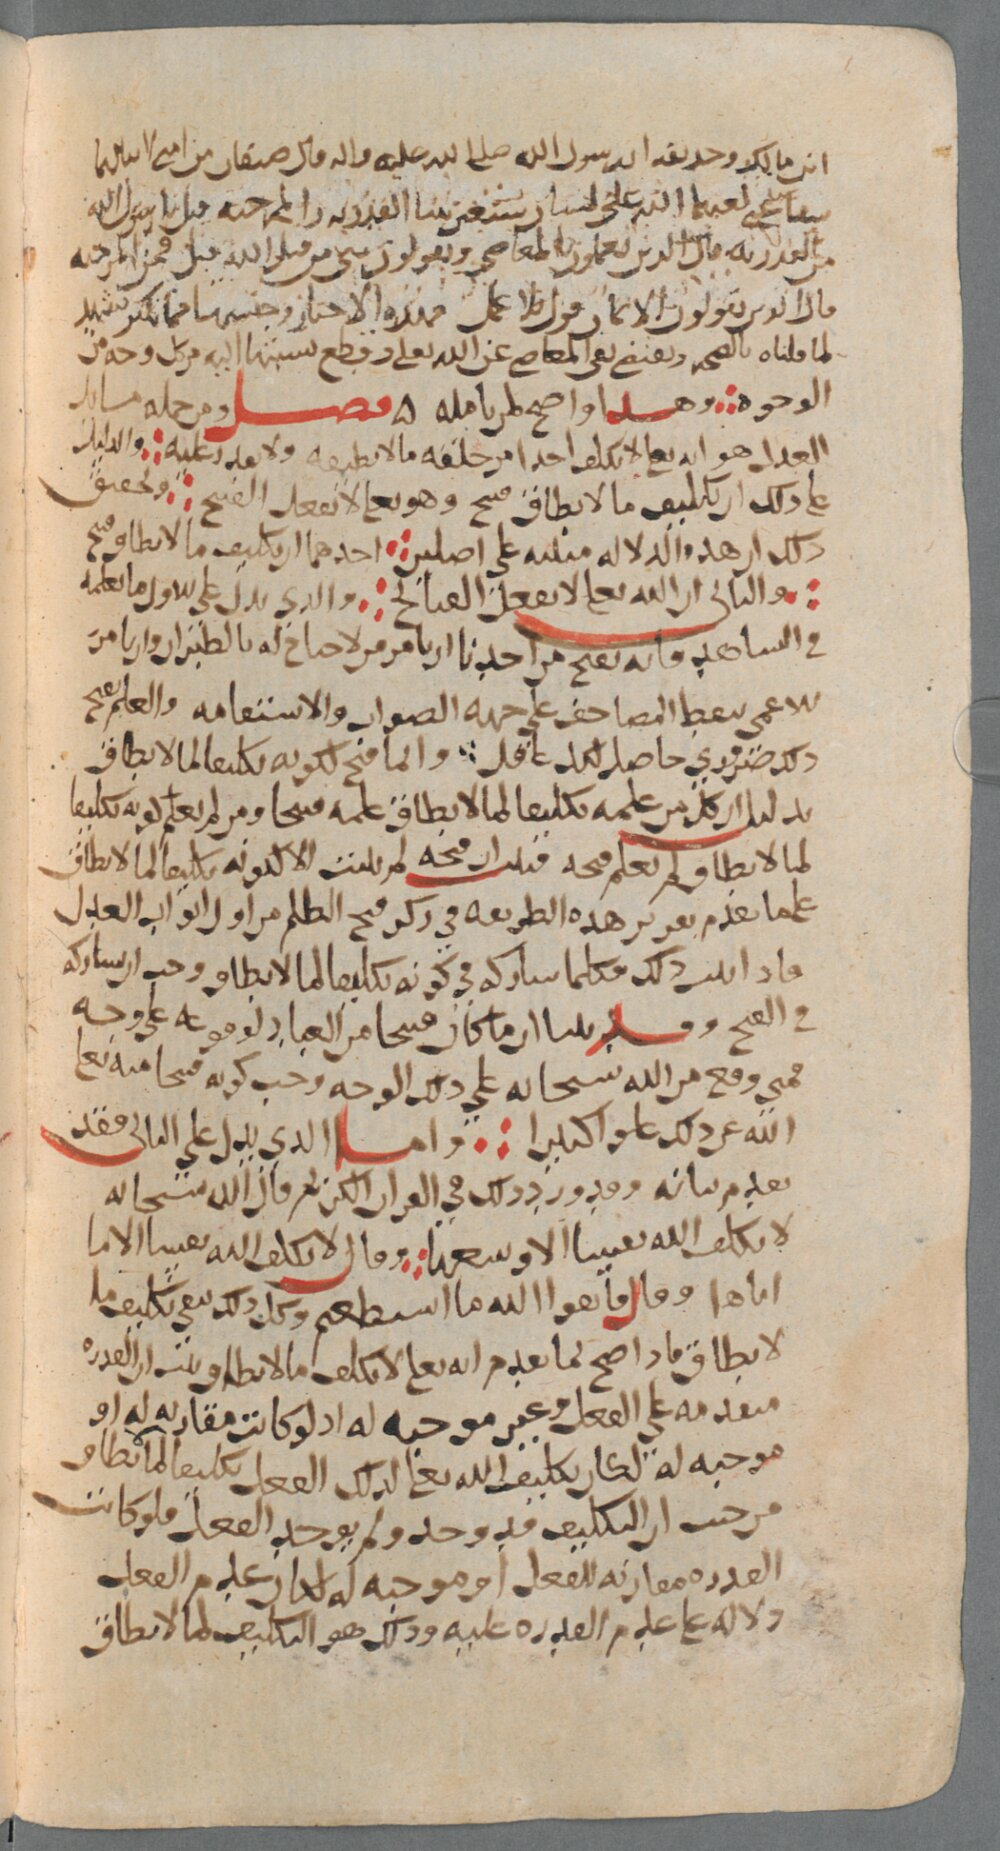 انس بن مالك وحذيفه ان رسول الله صلى الله عليه واله قال صنفان من امتي لا تنالهما
شفاعتي لعنهما الله على لسان سبعين نبيا القدريه والمرجيه قيل يا رسول الله
من القدريه قال الذين يعملون بالمعاصي ويقولون هي من قبل الله قيل فمن المرجيه
قال الذين يقولون الايمان قول بلا عمل فهذه الاخبار وجنسها مما يكثر تشهد
لما قلناه بالصحه وتقتضي نفي المعاصي عن الله تعالى وقطع نسبتها اليه من كل وجه من
الوجوه وهذا واضح لمن تامله ۵ فصل ومن جمله مسايل
العدل هو انه تعالى لا يكلف احدا من خلقه ما لا يطيقه ولا يقدر عليه والدليل
على ذلك ان تكليف ما لا يطاق قبيح وهو تعالى لا يفعل القبيح وتحقيق
ذلك ان هذه الدلاله مبنيه على اصلين احدهما ان تكليف ما لا يطاق قبيح
والثاني ان الله تعالى لا يفعل القبائح والذي يدل على الاول ما نعلمه
في الشاهد فانه يقبح من احدنا ان يامر من لا جناح له بالطيران وان يامر
الاعمى بنقط المصاحف على جهه الصواب والاستقامه والعلم بقبح
ذلك ضروري حاصل لكل عاقل وانما قبح لكونه تكليفا لما لا يطاق
بدليل ان كل من علمه تكليفا لما لا يطاق علمه قبيحا ومن لم يعلم كونه تكليفا
لما لا يطاق لم يعلم قبحه فثبت ان قبحه لم يثبت الا لكونه تكليفا لما لا يطاق
على ما تقدم تقرير هذه الطريقه في ذكر قبح الظلم من اول ابواب العدل
فاذا ثبت ذلك فكلما شاركه في كونه تكليفا لما لا يطاق وجب ان يشاركه
في القبح وقد بينا ان ما كان قبيحا من العباد لوقوعه على وجه
فمتى وقع من الله سبحانه على ذلك الوجه وجب كونه قبيحا منه تعالى
الله عن ذلك علوا كبيرا واما الذي يدل على الثاني فقد
تقدم بيانه وقد ورد ذلك في القران الكريم قال الله سبحانه
لا يكلف الله نفسا الا وسعها وقال لا يكلف الله نفسا الا ما
اتاها وقال فاتقوا الله ما استطعتم وكل ذلك ينفي تكليف ما
لا يطاق فاذا صح لما تقدم انه تعالى لا يكلف ما لا يطاق وثبت ان القدره
متقدمه على الفعل وغير موجبه له اذ لو كانت مقارنه له او
موجبه له لكان تكليف الله تعالى لذلك الفعل تكليفا لما لا يطاق
من حيث ان التكليف قد وجد ولم يوجد الفعل فلو كانت
القدره مقارنه للفعل او موجبه له لكان عدم الفعل
دلاله على عدم القدره عليه وذلك هو التكليف لما لا يطاق